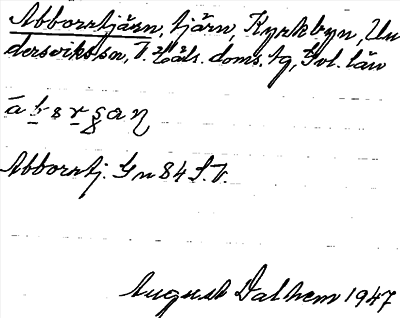 Abborrtjärn, tjärn, Kyrkbyn, Un
dersvik sn, V. Häls. doms. tg, Gvl. län
Abborrtj. Gn 84 S.V.
August Dalhem 1947